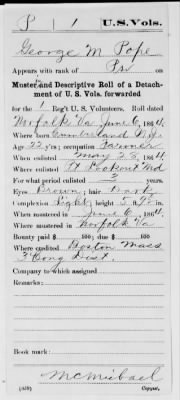 P 1 U.S. Vols.
George M. Pope
Appears with rank of Pvt on
Muster and Descriptive Roll of a Detach-
ment of U. S. Vols. forwarded
for the 1 Reg't U. S. Volunteers. Roll dated
Norfolk Va June 6, 1864.
Where born Cumberland N.C.
Age 22 y'rs; occupation Farmer
When enlisted May 28, 1864.
Where enlisted Pt Lookout Md
For what period enlisted 3 years.
Eyes Brown; hair Dark
Complexion Light; height 5 ft. in.
When mustered in June 6, 1864.
Where mustered in Norfolk Va
Bounty paid $ 100; due $ 100
Where credited Boston Mass
3 Cong Dist.
Company to which assigned
Remarks:
Book mark:
McMichael
(339) Copyist.